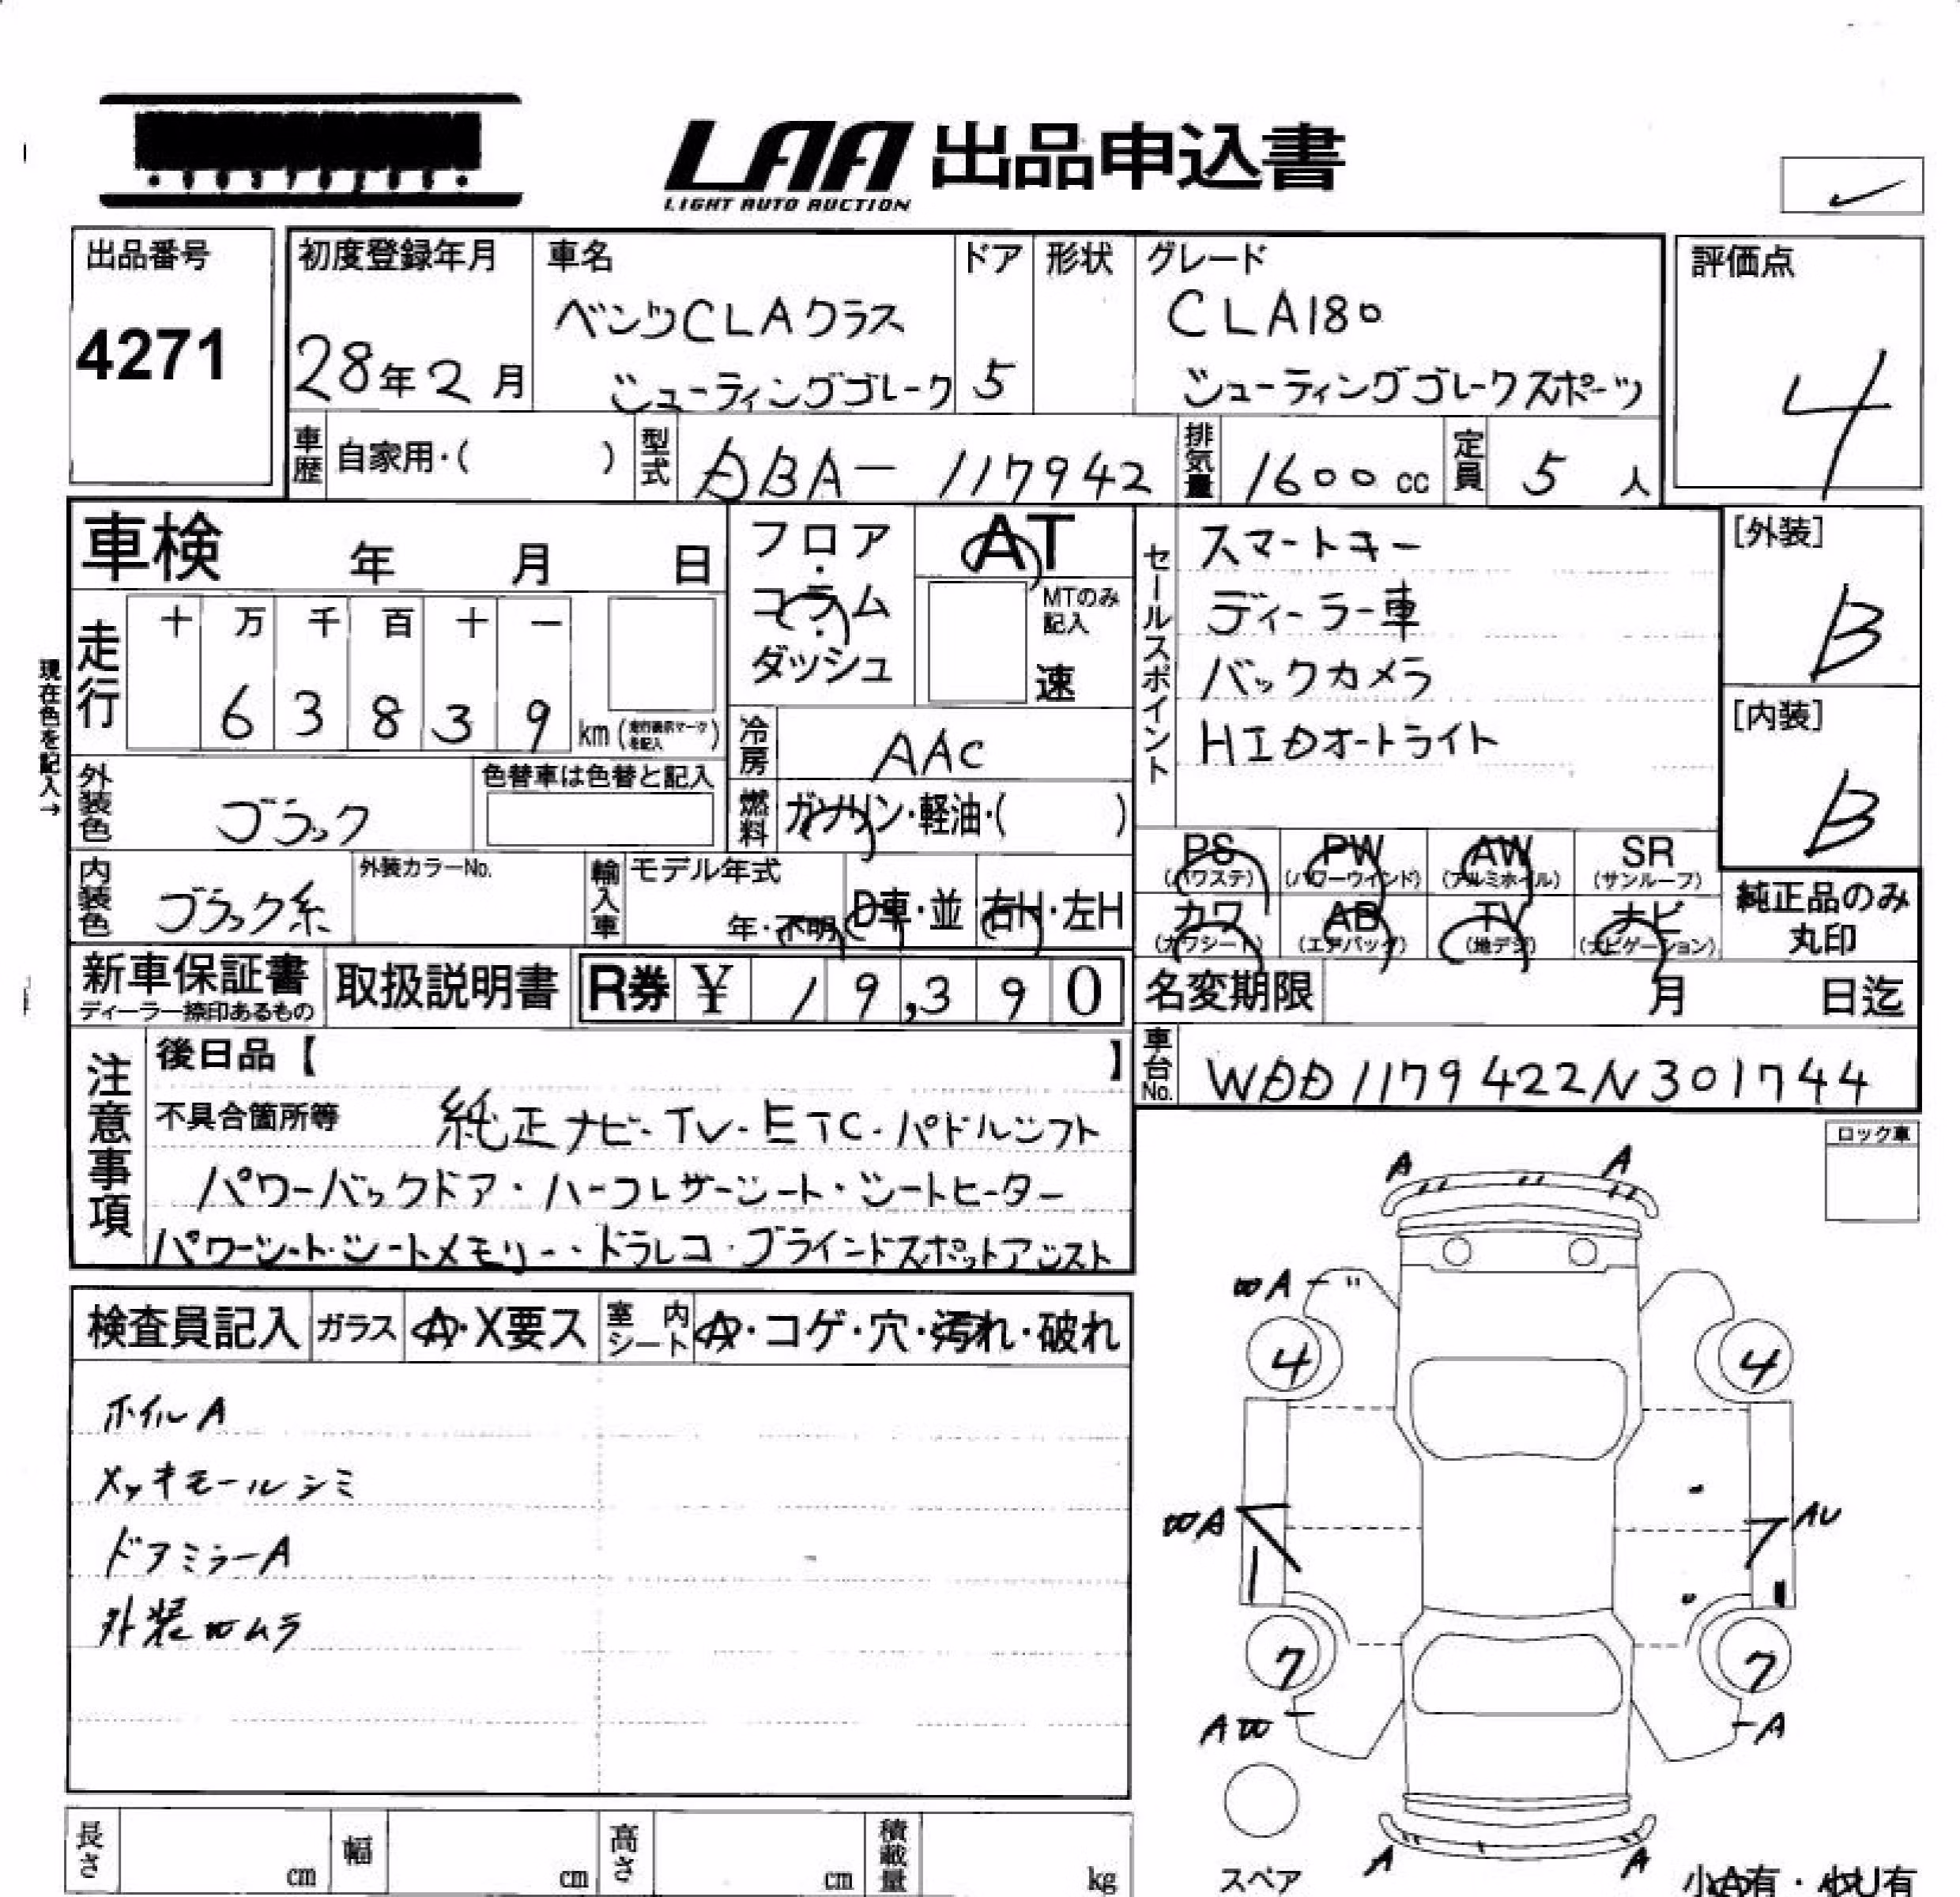 LAA 出品申込書
LIGHT AUTO AUCTION
出品番号
4271
初度登録年月
28年2月
車名
ベンツCLAクラス
シューティングブレーク
ドア
5
形状
グレード
CLA180
シューティングブレークスポーツ
評価点
4
車歴 自家用・( )
型式 DBA-117942
排気量 1600cc
定員 5人
車検 年 月 日
フロア・コラム・ダッシュ
AT
MTのみ記入
速
セールスポイント
スマートキー
ディーラー車
バックカメラ
HIDオートライト
[外装]
B
[内装]
B
現在色を記入→
走行
十 万 千 百 十 一
6 3 8 3 9 km
冷房 AAC
燃料 ガソリン・軽油・( )
外装色 ブラック
色替車は色替と記入
内装色 ブラック系
外装カラーNo.
輸入車 モデル年式
年・不明 D車・並 右H・左H
PS (パワステ)
PW (パワーウインド)
AW (アルミホイル)
SR (サンルーフ)
カワ (カワシート)
AB (エアバッグ)
TV (地デジ)
ナビ (ナビゲーション)
純正品のみ
丸印
新車保証書
ディーラー捺印あるもの
取扱説明書
R券 ¥ 19,390
名変期限 月 日迄
車台No. WDD1179422N301744
注意事項
後日品【 】
不具合箇所等 純正ナビ・TV・ETC・パドルシフト
パワーバックドア・ハーフレザーシート・シートヒーター
パワーシート・シートメモリー・ドラレコ・ブラインドスポットアシスト
ロック車
検査員記入 ガラス A・X要ス 室内シート A・コゲ・穴・汚れ・破れ
ホイルA
メッキモールシミ
ドアミラーA
外装ムラ
A A
A
4 4
A AU
7 7
A A
スペア
A A
小A有・小U有
長さ cm 幅 cm 高さ cm 積載量 kg